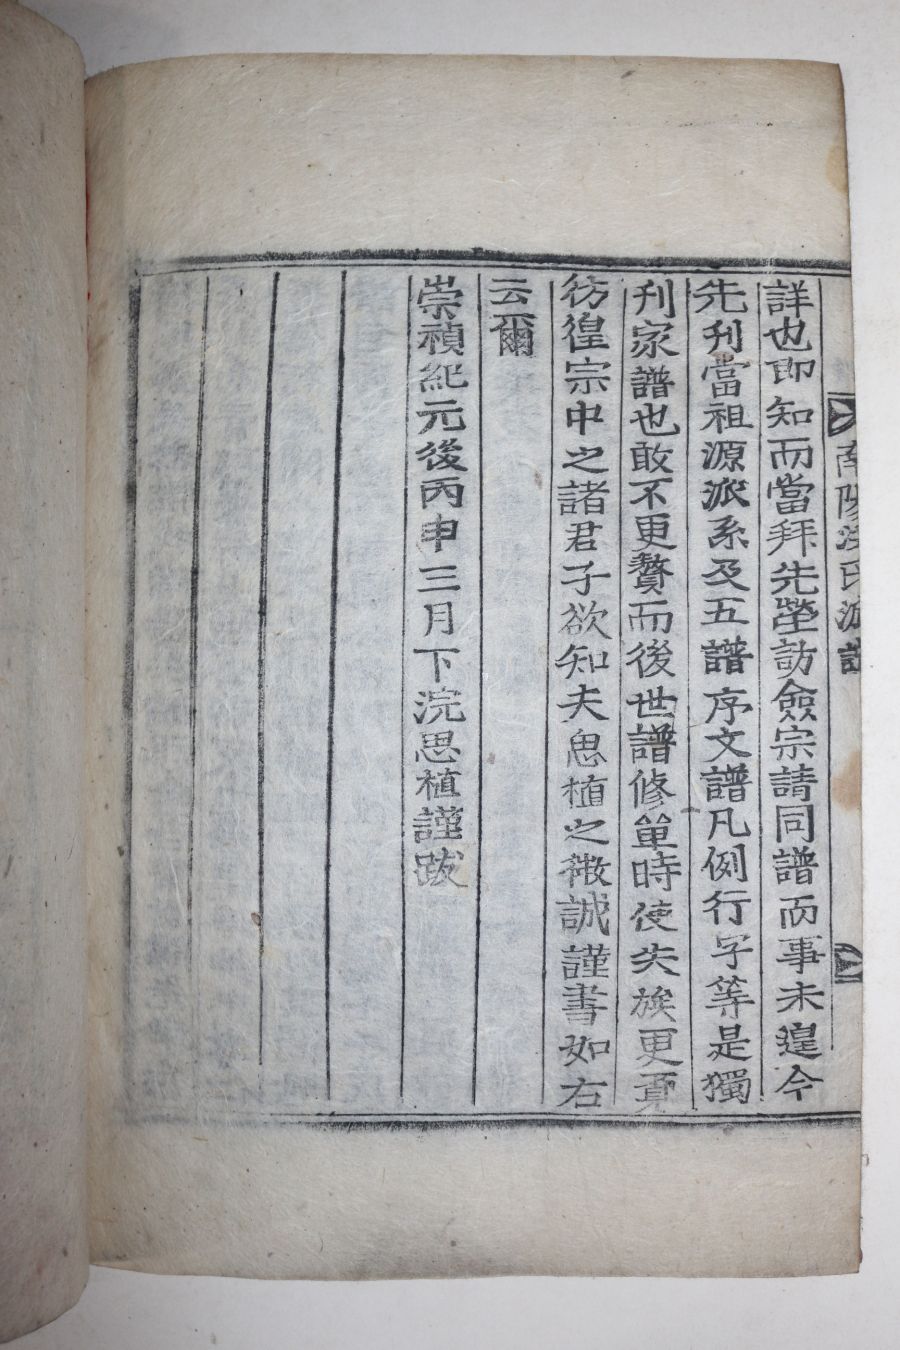 南陽洪氏派譜
詳也即知而當拜先塋訪僉宗請同譜而事未遑今
先刋當祖源派系及五譜序文譜凡例行字等是獨
刋家譜也敢不更贅而後世譜修單時使失族更覓
彷徨宗中之諸君子欲知夫思植之微誠謹書如右
云爾
崇禎紀元後丙申三月下浣思植謹跋